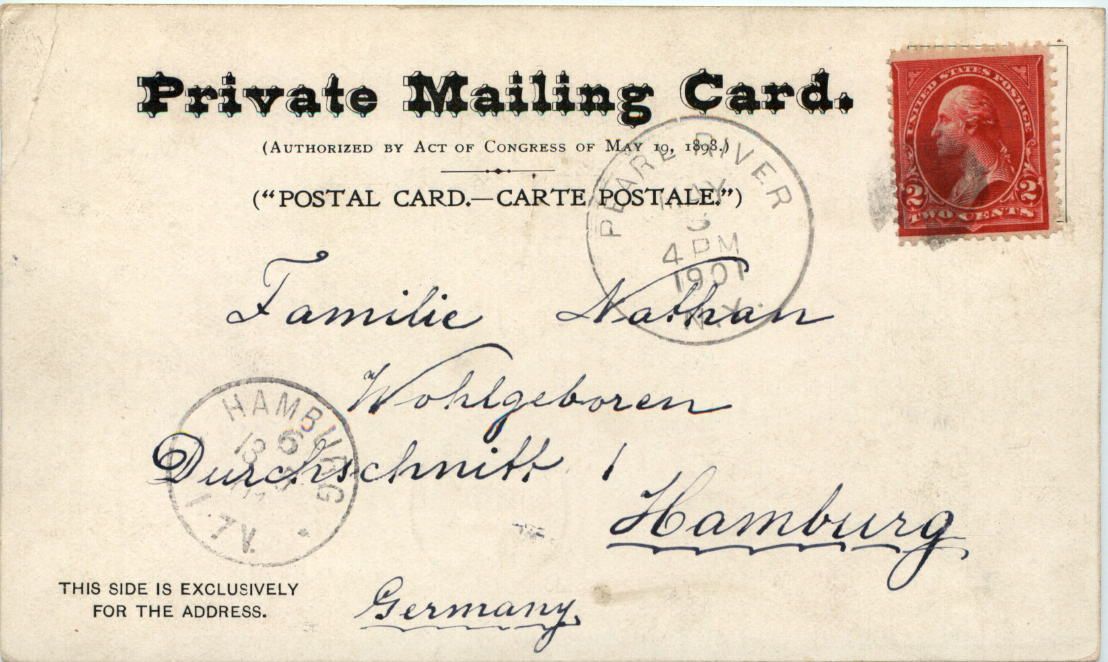 Private Mailing Card.
(AUTHORIZED BY ACT OF CONGRESS OF MAY 19, 1898.)
("POSTAL CARD.—CARTE POSTALE.")
UNITED STATES POSTAGE
2 2
TWO CENTS
PEARL RIVER
MAY
4 PM
1901
N.Y.
Familie Nathan
Wohlgeboren
Durchschnitt 1
Hamburg
Germany.
HAMBURG
6
1.
7V.
THIS SIDE IS EXCLUSIVELY
FOR THE ADDRESS.